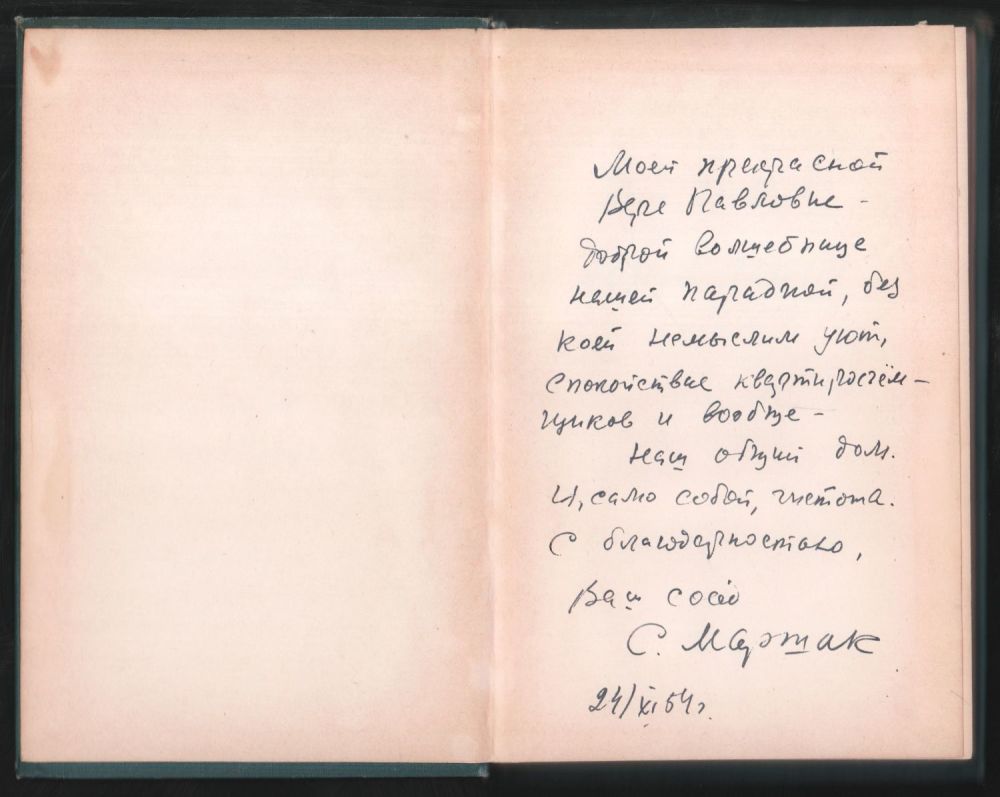 Моей прекрасной
Вере Павловне -
доброй волшебнице
нашей парадной, без
коей немыслим уют,
спокойствие квартиросъём-
щиков и вообще -
наш общий дом.
И, само собой, чистота.
С благодарностью,
Ваш сосед
С. Маршак
24/XI 54 г.